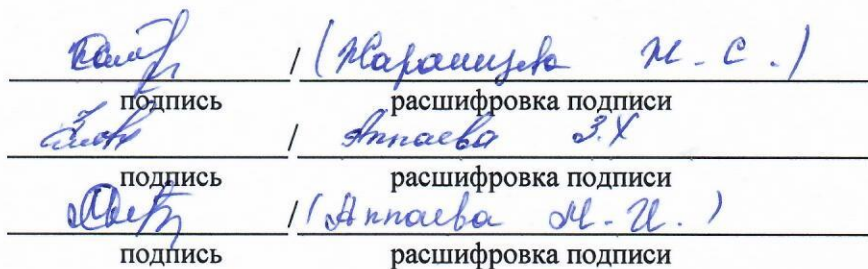 / ( М. С. )
подпись расшифровка подписи
/ Аппаева З.Х
подпись расшифровка подписи
/ (Аппаева М-И. )
подпись расшифровка подписи